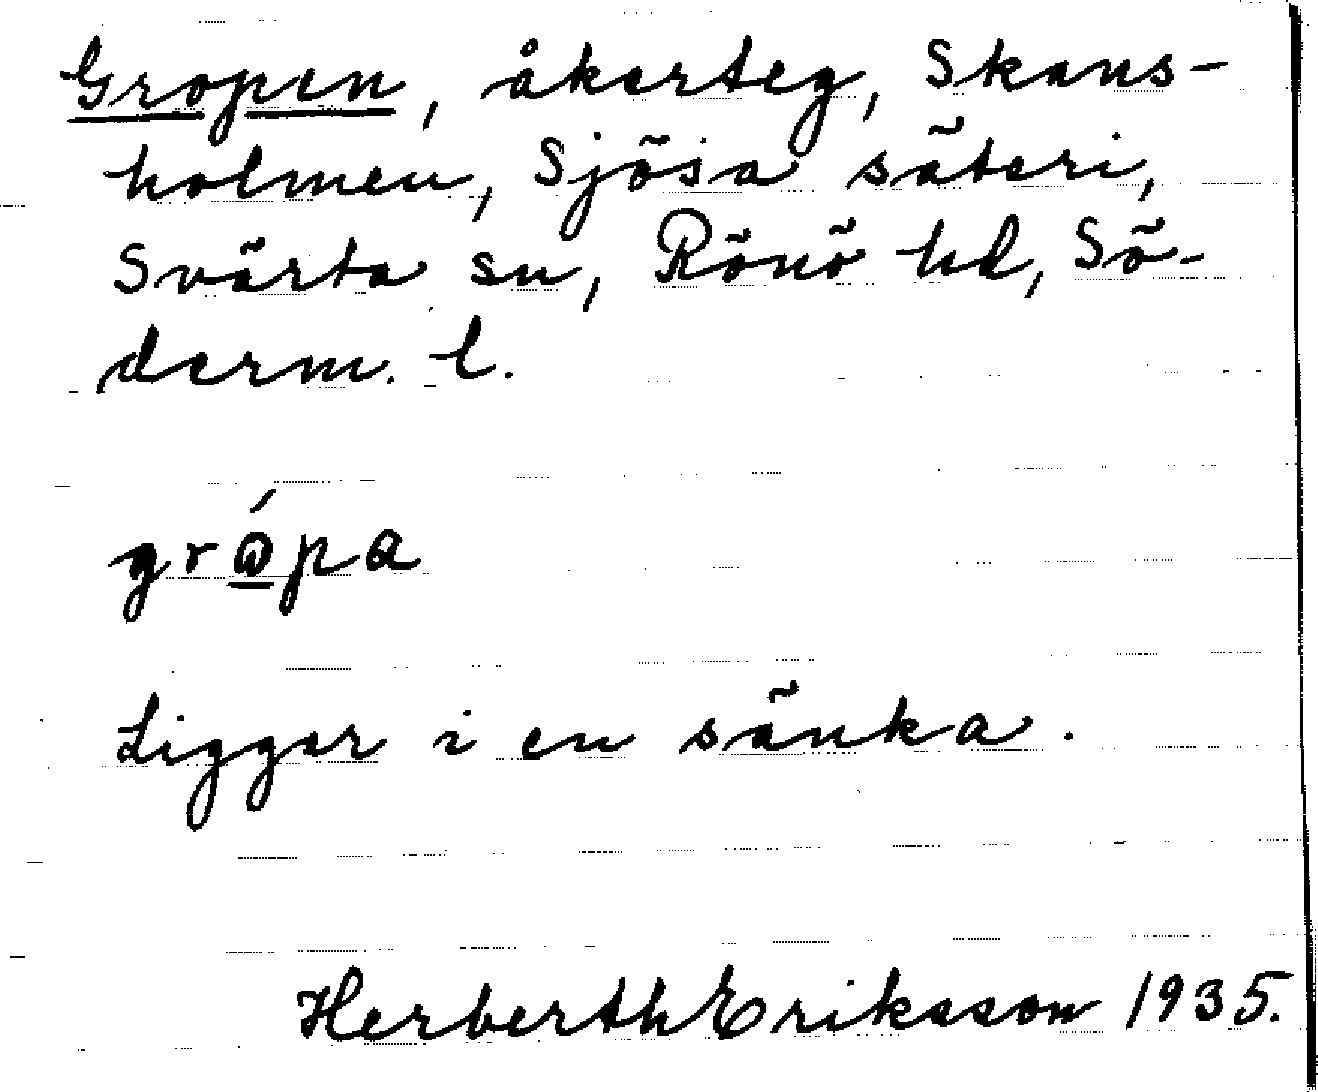 Gropen, åkerteg, Skans-
holmen, Sjösa säteri,
Svärta sn, Rönö hd, Sö-
derm. l.
gr
Ligger i en sänka.
Herberth Eriksson 1935.